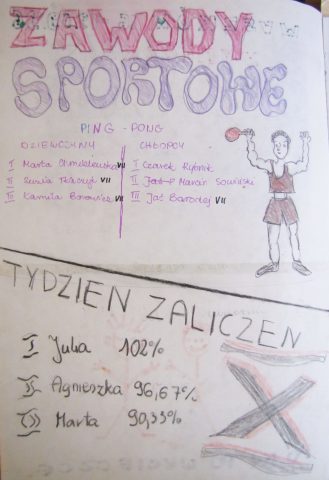 ZAWODY
SPORTOWE
PING - PONG
DZIEWCZYNY
I Marta Chmielewska VII
II VII
III Kamila VII
CHŁOPCY
I Czarek Rybnik
II Marcin
III Jaś VII
TYDZIEN ZALICZEN
I Julia 102%
II Agnieszka 96,67%
III Marta 90,33%
X